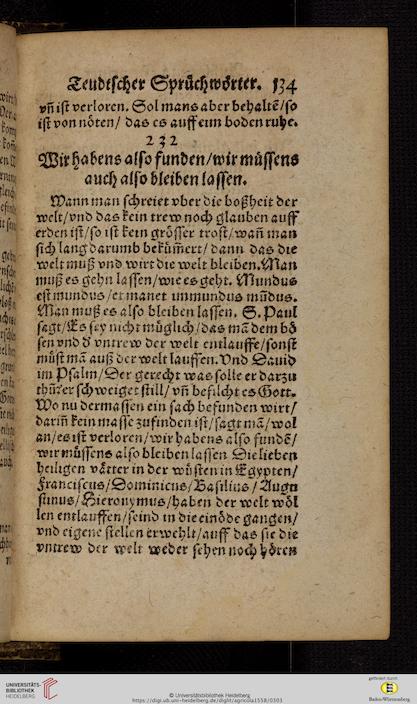 Teudtscher Sprüchwörter. 134
vñ ist verloren. Sol mans aber behaltẽ/so
ist von nöten/ das es auff eim boden ruhe.
232
Wir habens also funden/wir müssens
auch also bleiben lassen.
Wann man schreiet vber die boßheit der
welt/vnd das kein trew noch glauben auff
erden ist/so ist kein grösser trost/wañ man
sich lang darumb bekům̃ert/ dann das die
welt muß vnd wirt die welt bleiben. Man
muß es gehn lassen/wie es geht. Mundus
est mundus/et manet immundus mũdus.
Man muß es also bleiben lassen. S. Paul
sagt/Es sey nicht müglich/das mã dem bö
sen vnd d̓ vntrew der welt entlauffe/sonst
müst mã auß der welt lauffen. Vnd Dauid
im Psalm/Der gerecht was solle er darzu
thůn? er schweiget still/ vñ befilcht es Gott.
Wo nu dermassen ein sach befunden wirt/
dariñ kein masse zufinden ist/sagt mã/wol
an/es ist verloren/wir habens also fundẽ/
wir müssens also bleiben lassen Die lieben
heiligen vätter in der wüsten in Egypten/
Franciscus/Dominicus/Basilius/Augu
stinus/Hieronymus/haben der welt wöl
len entlauffen/seind in die einöde gangen/
vnd eigene stellen erwehlt/auff das sie die
vntrew der welt weder sehen noch hören
UNIVERSITÄTS-
BIBLIOTHEK
HEIDELBERG
© Universitätsbibliothek Heidelberg
https://digi.ub.uni-heidelberg.de/diglit/agricola1558/0303
gefördert durch
Baden-Württemberg